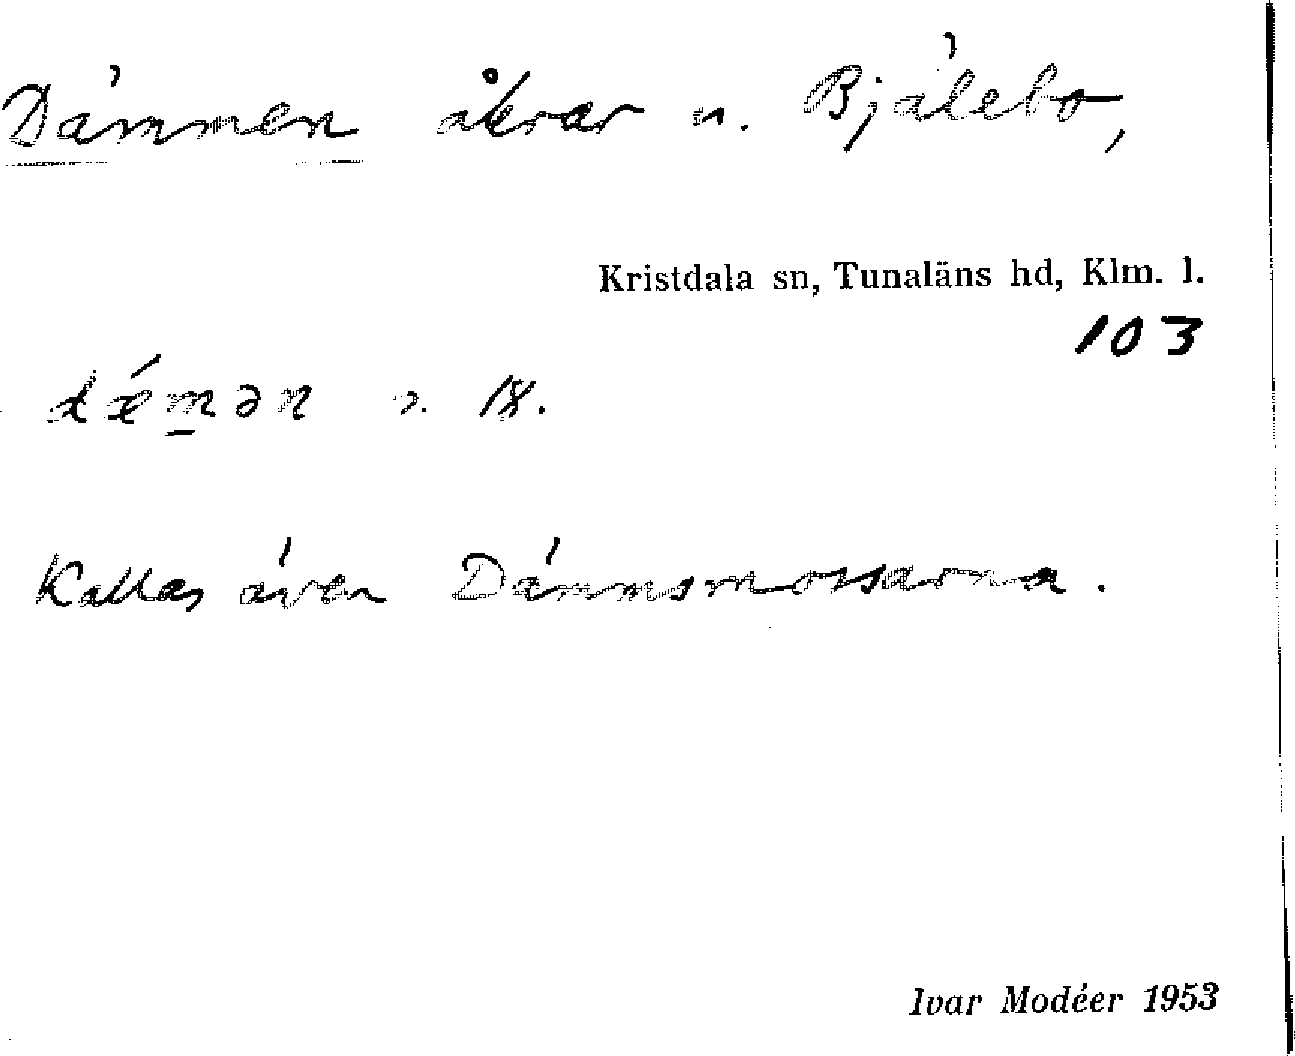 Dämmen åkrar u. Bjälebo,
Kristdala sn, Tunaläns hd, Klm. l.
103
dǽm̲ən
Kallas även Dämmsmossarna.
Ivar Modéer 1953